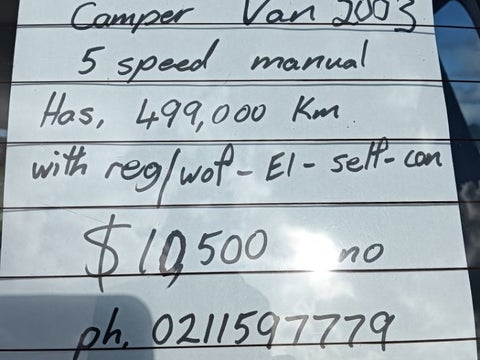 Camper Van 2003
5 speed manual
Has, 499,000 Km
with reg/wof - El - self-con
$10,500 no
ph, 0211597779